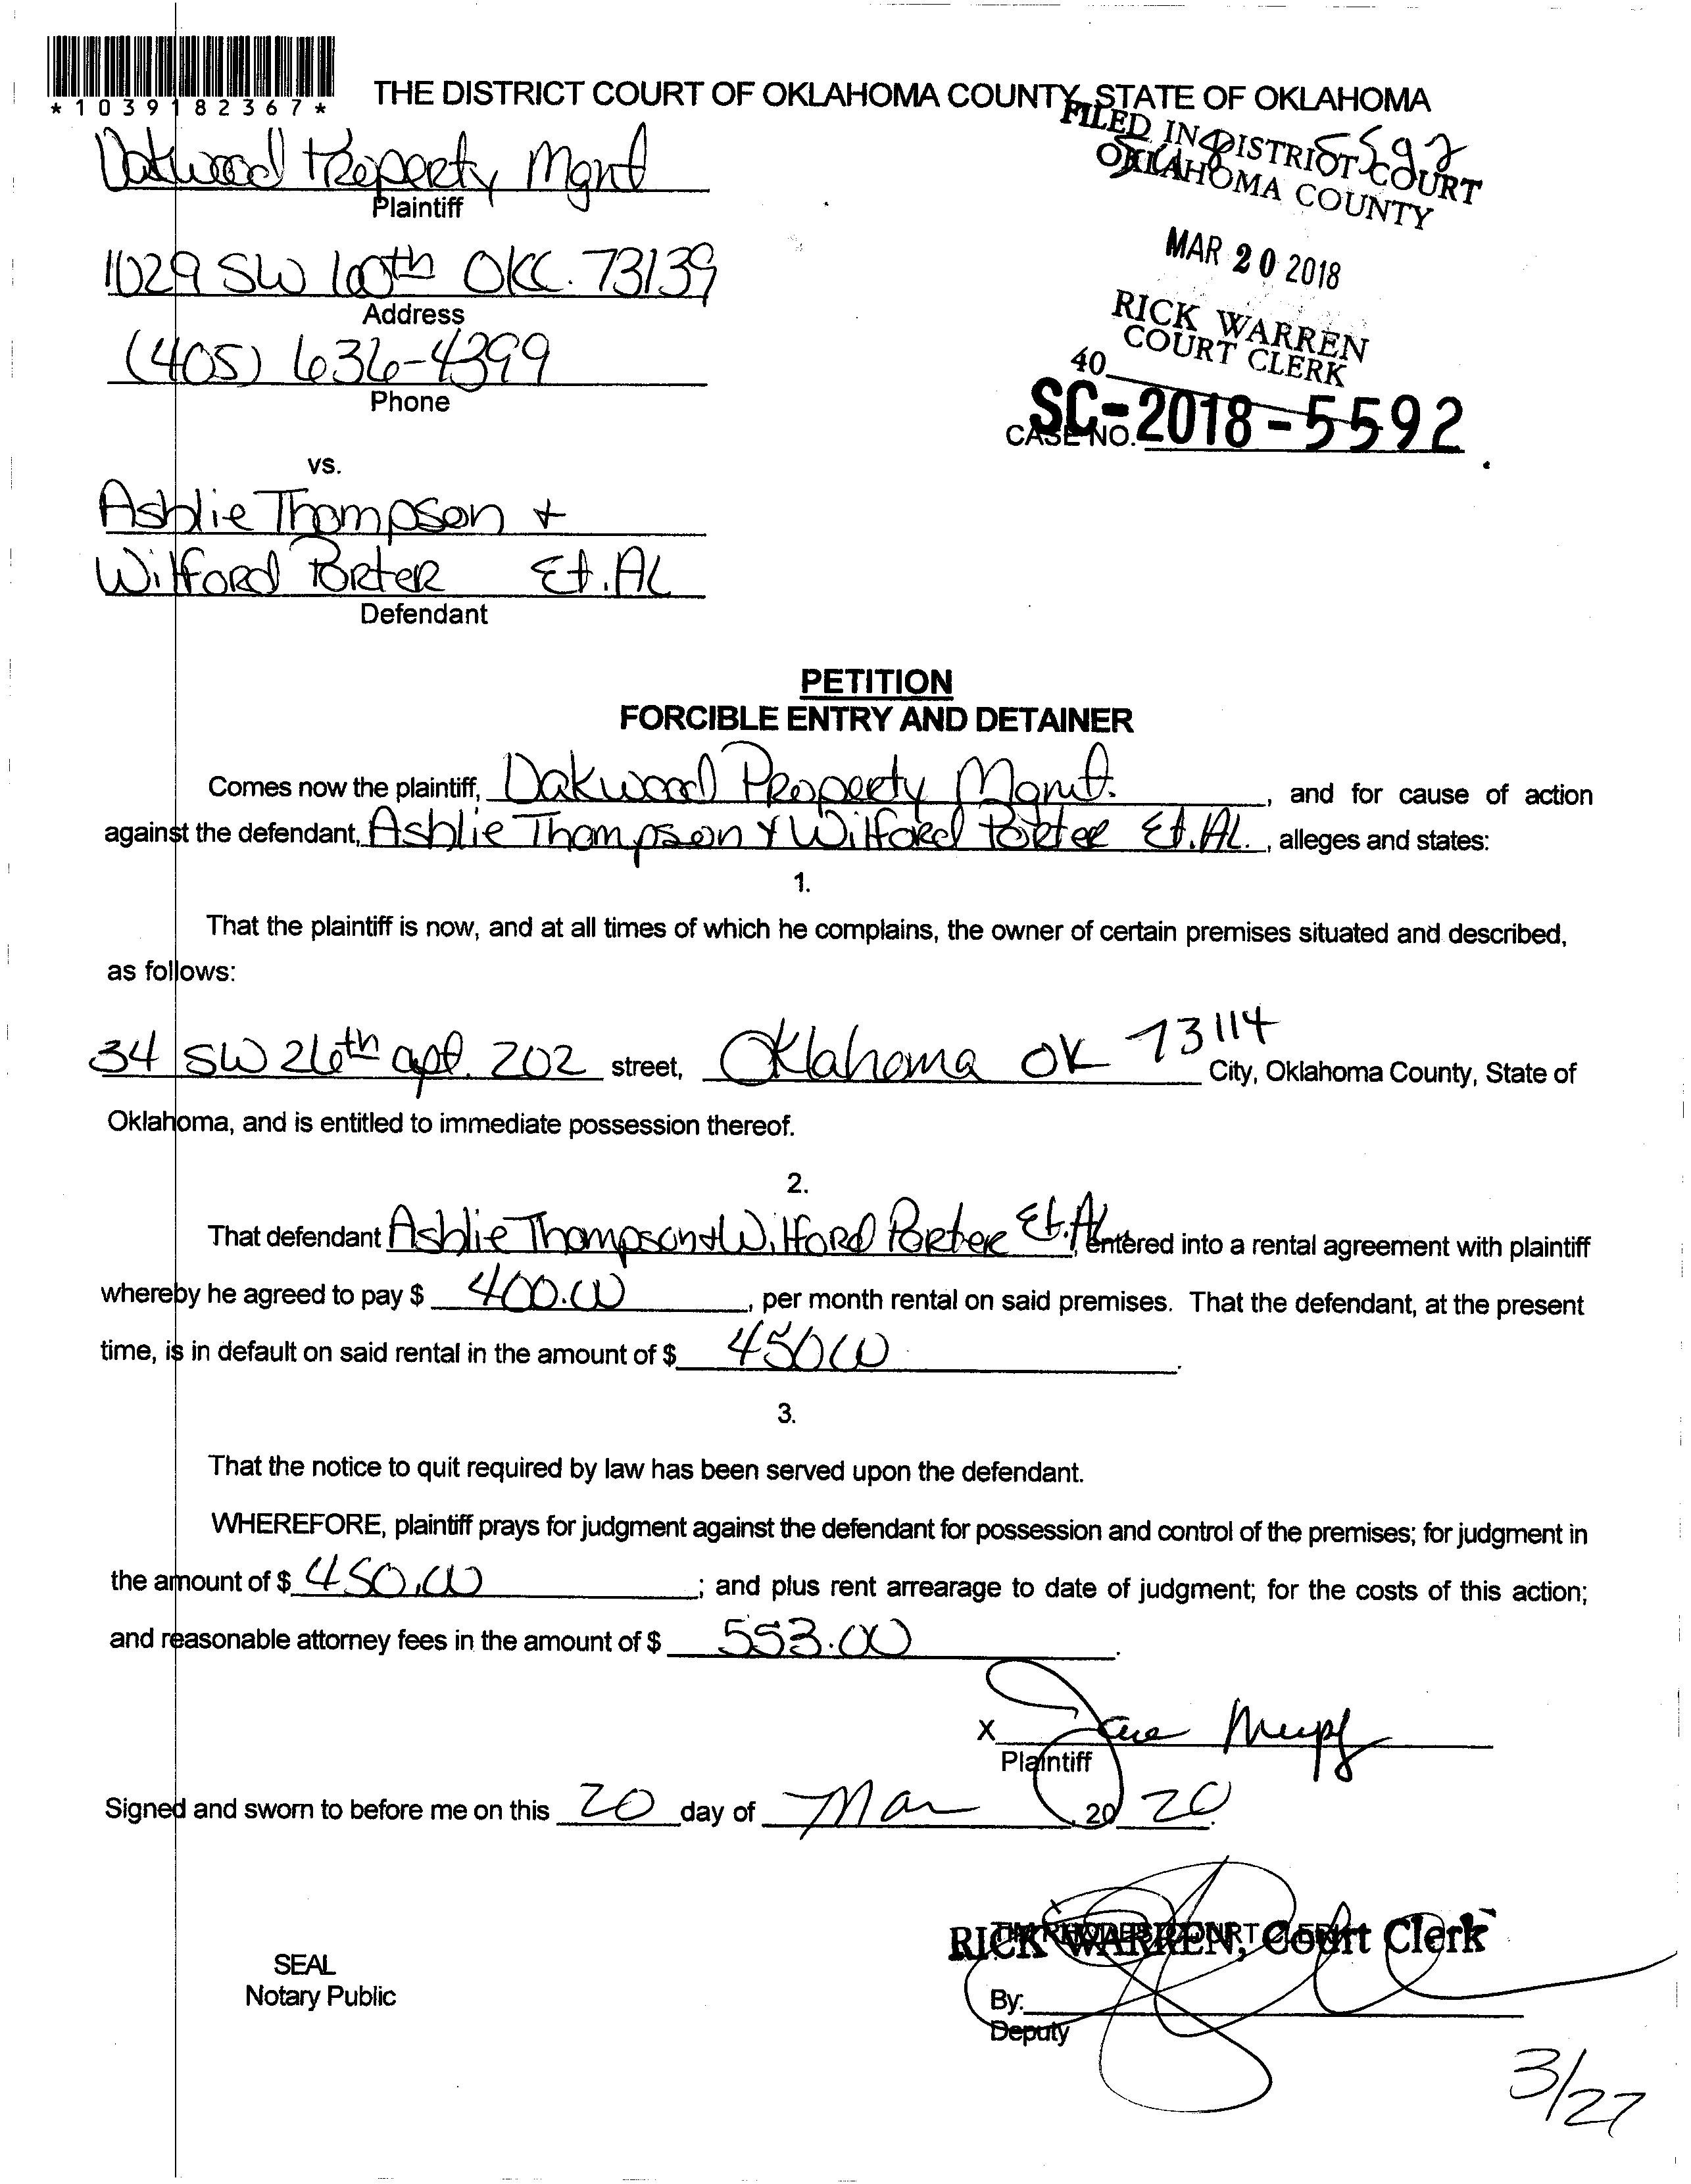 *1039182367*
THE DISTRICT COURT OF OKLAHOMA COUNTY, STATE OF OKLAHOMA
FILED IN DISTRICT COURT
OKLAHOMA COUNTY
MAR 20 2018
RICK WARREN
COURT CLERK
40
Oakwood Property Mgmt
Plaintiff
1029 SW 100th OKC. 73139
Address
(405) 636-4399
Phone
CASE NO. SC-2018-5592
vs.
Ashlie Thompson +
Wilford Porter Et. AL
Defendant
PETITION
FORCIBLE ENTRY AND DETAINER
Comes now the plaintiff, Oakwood Property Mgmt. , and for cause of action
against the defendant, Ashlie Thompson + Wilford Porter Et. AL. , alleges and states:
1.
That the plaintiff is now, and at all times of which he complains, the owner of certain premises situated and described,
as follows:
34 SW 26th apt. 202 street, Oklahoma OK 73114 City, Oklahoma County, State of
Oklahoma, and is entitled to immediate possession thereof.
2.
That defendant Ashlie Thompson + Wilford Porter Et. AL , entered into a rental agreement with plaintiff
whereby he agreed to pay $ 400.00 , per month rental on said premises. That the defendant, at the present
time, is in default on said rental in the amount of $ 450 00 .
3.
That the notice to quit required by law has been served upon the defendant.
WHEREFORE, plaintiff prays for judgment against the defendant for possession and control of the premises; for judgment in
the amount of $ 450.00 ; and plus rent arrearage to date of judgment; for the costs of this action;
and reasonable attorney fees in the amount of $ 553.00 .
X
Plaintiff
Signed and sworn to before me on this 20 day of Mar , 20 20 .
RICK WARREN, Court Clerk
SEAL
Notary Public
By:
Deputy
3/27